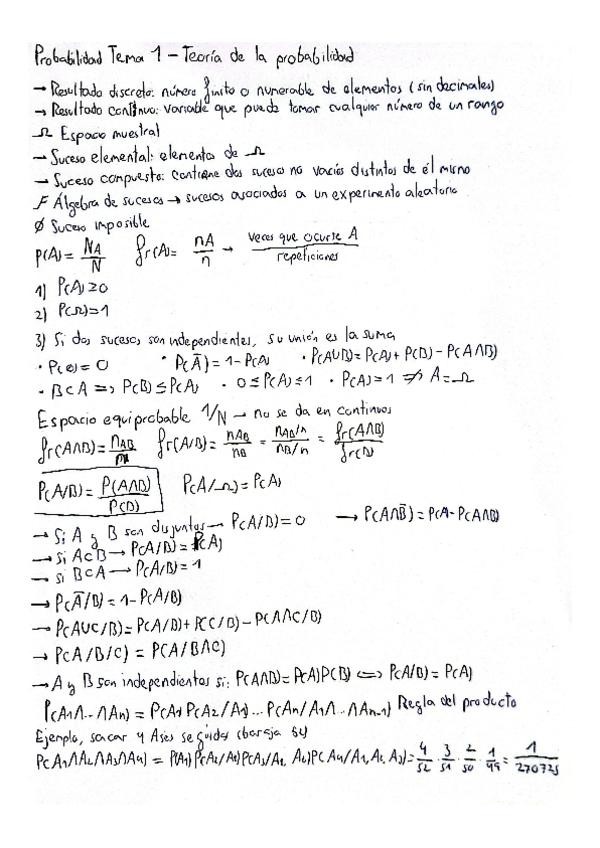 Probabilidad Tema 1 – Teoría de la probabilidad
→ Resultado discreto: número finito o numerable de elementos (sin decimales)
→ Resultado continuo: variable que puede tomar cualquier número de un rango
Ω Espacio muestral
→ Suceso elemental: elemento de Ω
→ Suceso compuesto: contiene dos suceso no vacíos distintos de él mismo
F Álgebra de sucesos → sucesos asociados a un experimento aleatorio
Ø Suceso imposible
P(A) = NA/N fr(A) = nA/n → veces que ocurre A/repeticiones
1) P(A) ≥ 0
2) P(Ω) = 1
3) Si dos sucesos son independientes, su unión es la suma
· P(ø) = 0 · P(Ā) = 1 - P(A) · P(A∪B) = P(A) + P(B) - P(A∩B)
· B⊂A => P(B) ≤ P(A) · 0 ≤ P(A) ≤ 1 · P(A) = 1 ⇏ A = Ω
Espacio equiprobable 1/N → no se da en continuos
fr(A∩B) = nAB/n fr(A/B) = nAB/nB = (nAB/n)/(nB/n) = fr(A∩B)/fr(B)
P(A/B) = P(A∩B)/P(B) P(A/Ω) = P(A)
→ Si A y B son disjuntos → P(A/B) = 0 → P(A∩B̄) = P(A - P(A∩B)
→ Si A⊂B → P(A/B) = P(A)
→ si B⊂A → P(A/B) = 1
→ P(Ā/B) = 1 - P(A/B)
→ P(A∪C/B) = P(A/B) + P(C/B) - P(A∩C/B)
→ P(A/B/C) = P(A/B∩C)
→ A y B son independientes si: P(A∩B) = P(A)P(B) <=> P(A/B) = P(A)
P(A1∩...∩An) = P(A1 P(A2/A1)...P(An/A1∩...∩An-1) Regla del producto
Ejemplo, sacar 4 Ases seguidos (baraja 52)
P(A1∩A2∩A3∩A4) = P(A1) P(A2/A1) P(A3/A1, A2) P(A4/A1, A2, A3) = 4/52 · 3/51 · 2/50 · 1/49 = 1/270725